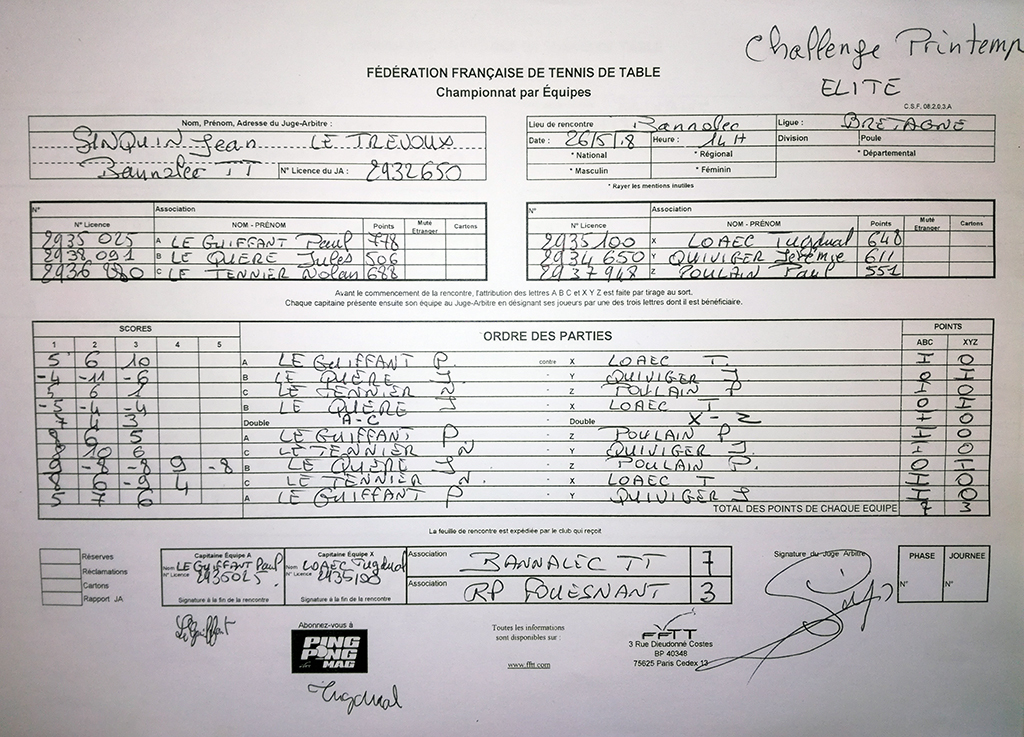 Challenge Printemp
ELITE
FÉDÉRATION FRANÇAISE DE TENNIS DE TABLE
Championnat par Équipes
C.S.F. 08.2.0.3.A
Nom, Prénom, Adresse du Juge-Arbitre :
SINQUIN Jean LE TREVOUX
Bannalec TT N° Licence du JA : 2932650
Lieu de rencontre Bannalec Ligue : BRETAGNE
Date : 26/5/18 Heure : 14H Division Poule
* National * Régional * Départemental
* Masculin * Féminin
* Rayer les mentions inutiles
N° Association
N° Licence NOM - PRÉNOM Points Muté Etranger Cartons
2935 025 A LE GUIFFANT Paul 778
2938 091 B LE QUERE Jules 506
2936 C LE TENNIER Nolan 688
N° Association
N° Licence NOM - PRÉNOM Points Muté Etranger Cartons
2935100 X LOAEC Tugdual 648
2934 650 Y QUIVIGER Jérémie 611
2937948 Z POULAIN Paul 551
Avant le commencement de la rencontre, l'attribution des lettres A B C et X Y Z est faite par tirage au sort.
Chaque capitaine présente ensuite son équipe au Juge-Arbitre en désignant ses joueurs par une des trois lettres dont il est bénéficiaire.
SCORES ORDRE DES PARTIES POINTS
1 2 3 4 5 ABC XYZ
5 6 10 A LE GUIFFANT P contre X LOAEC T. 1 0
-4 -11 -6 B LE QUERE J - Y QUIVIGER J 0 1
6 1 C LE TENNIER N - Z POULAIN P 1 0
-4 -4 B LE QUERE J - X LOAEC T 0 1
4 3 Double A-C Double X-Z 1 0
6 5 A LE GUIFFANT P - Z POULAIN P 1 0
10 6 C LE TENNIER N - Y QUIVIGER J. 1 0
-8 -8 9 -8 B LE QUERE J - Z POULAIN P. 0 1
6 -9 4 C LE TENNIER N. - X LOAEC T 1 0
5 7 6 A LE GUIFFANT P - Y QUIVIGER J 1 0
TOTAL DES POINTS DE CHAQUE EQUIPE 7 3
La feuille de rencontre est expédiée par le club qui reçoit
Réserves
Réclamations
Cartons
Rapport JA
Capitaine Équipe A
Nom LE GUIFFANT Paul
N° Licence 2935025
Signature à la fin de la rencontre
Capitaine Équipe X
Nom LOAEC Tugdual
N° Licence 2935100
Signature à la fin de la rencontre
Association BANNALEC TT 7
Association RP FOUESNANT 3
Signature du Juge Arbitre
PHASE JOURNEE
N° N°
Le Guiffant
Abonnez-vous à
PING PONG MAG
Tugdual
Toutes les informations
sont disponibles sur :
www.fftt.com
FFTT
3 Rue Dieudonné Costes
BP 40348
75625 Paris Cedex 13